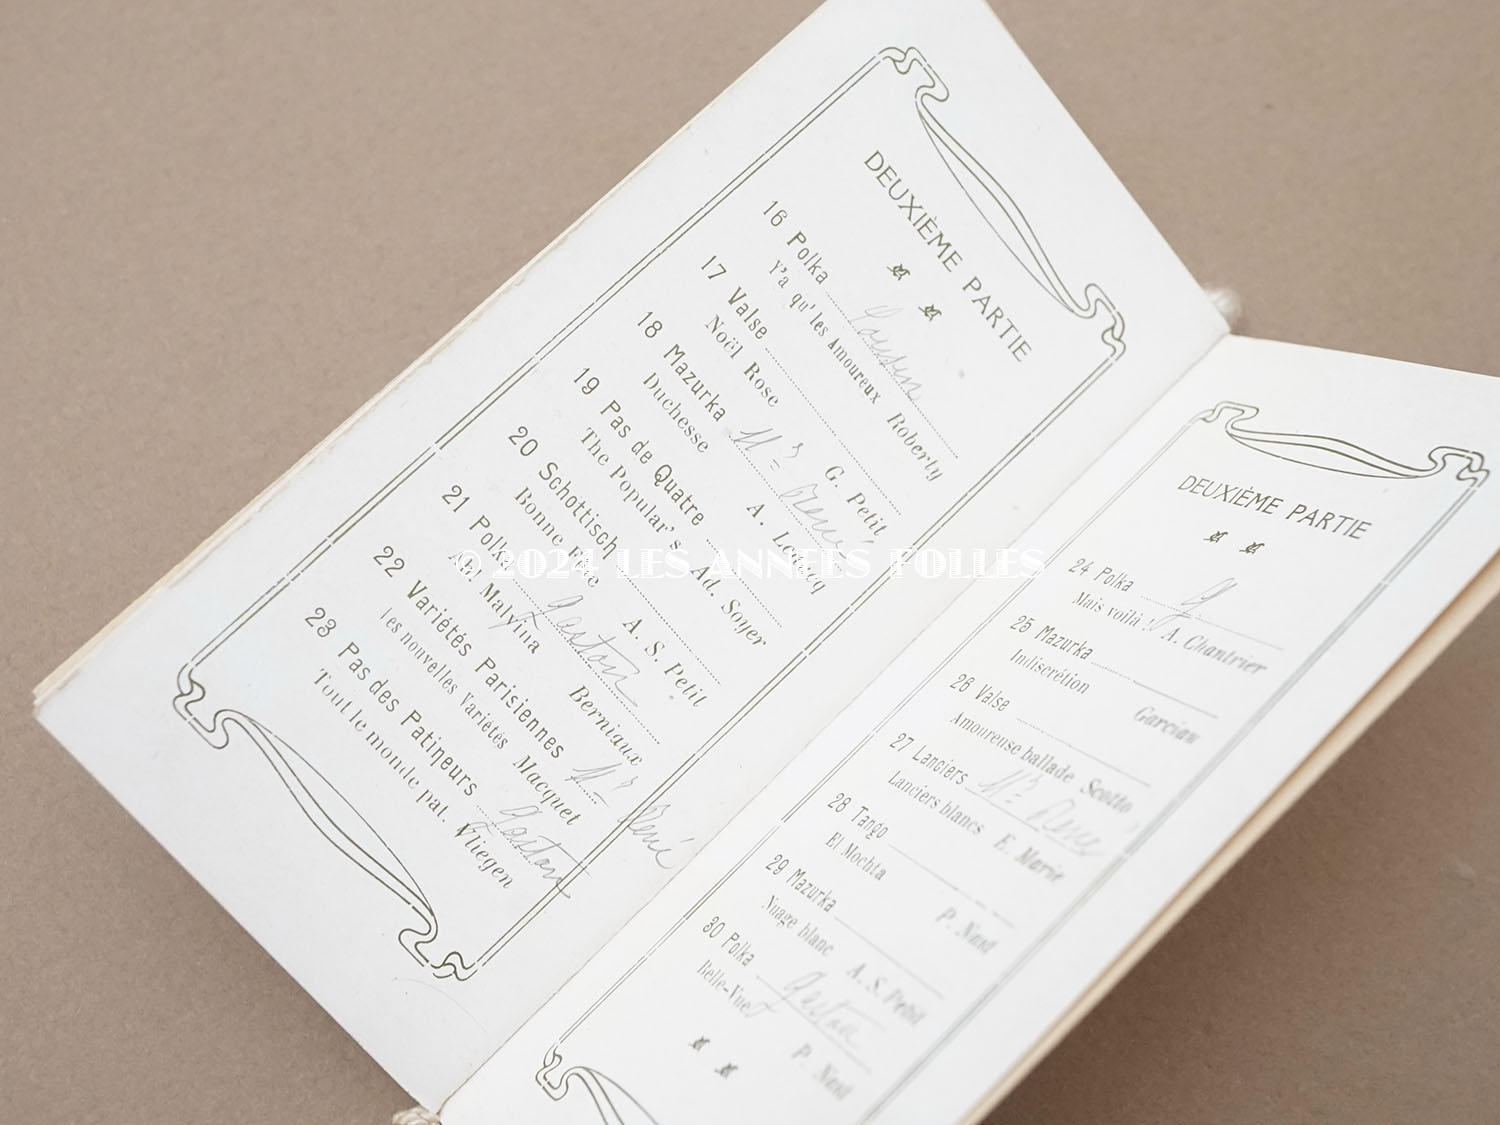 DEUXIÈME PARTIE
16 Polka Cousin
Y'a qu'les Amoureux Roberty
17 Valse
Noël Rose G. Petit
18 Mazurka Mr René
Duchesse A. Leducq
19 Pas de Quatre
The Popular's Ad. Soyer
20 Schottisch
Bonne Fée A. S. Petit
21 Polka Gaston
Ah! Malvina Berniaux
22 Variétés Parisiennes Mr René
les nouvelles Variétés Macquet
23 Pas des Patineurs Gaston
Tout le monde pat. Vliegen
DEUXIÈME PARTIE
24 Polka
Mais voilà! A. Chantrier
25 Mazurka
Indiscrétion Garciau
26 Valse
Amoureuse ballade Scotto
27 Lanciers Mr René
Lanciers blancs E. Marie
28 Tango
El Mochta P. Nast
29 Mazurka
Nuage blanc A. S. Petit
30 Polka Gaston
Belle-Vue P. Nast
© 2024 LES ANNÉES FOLLES